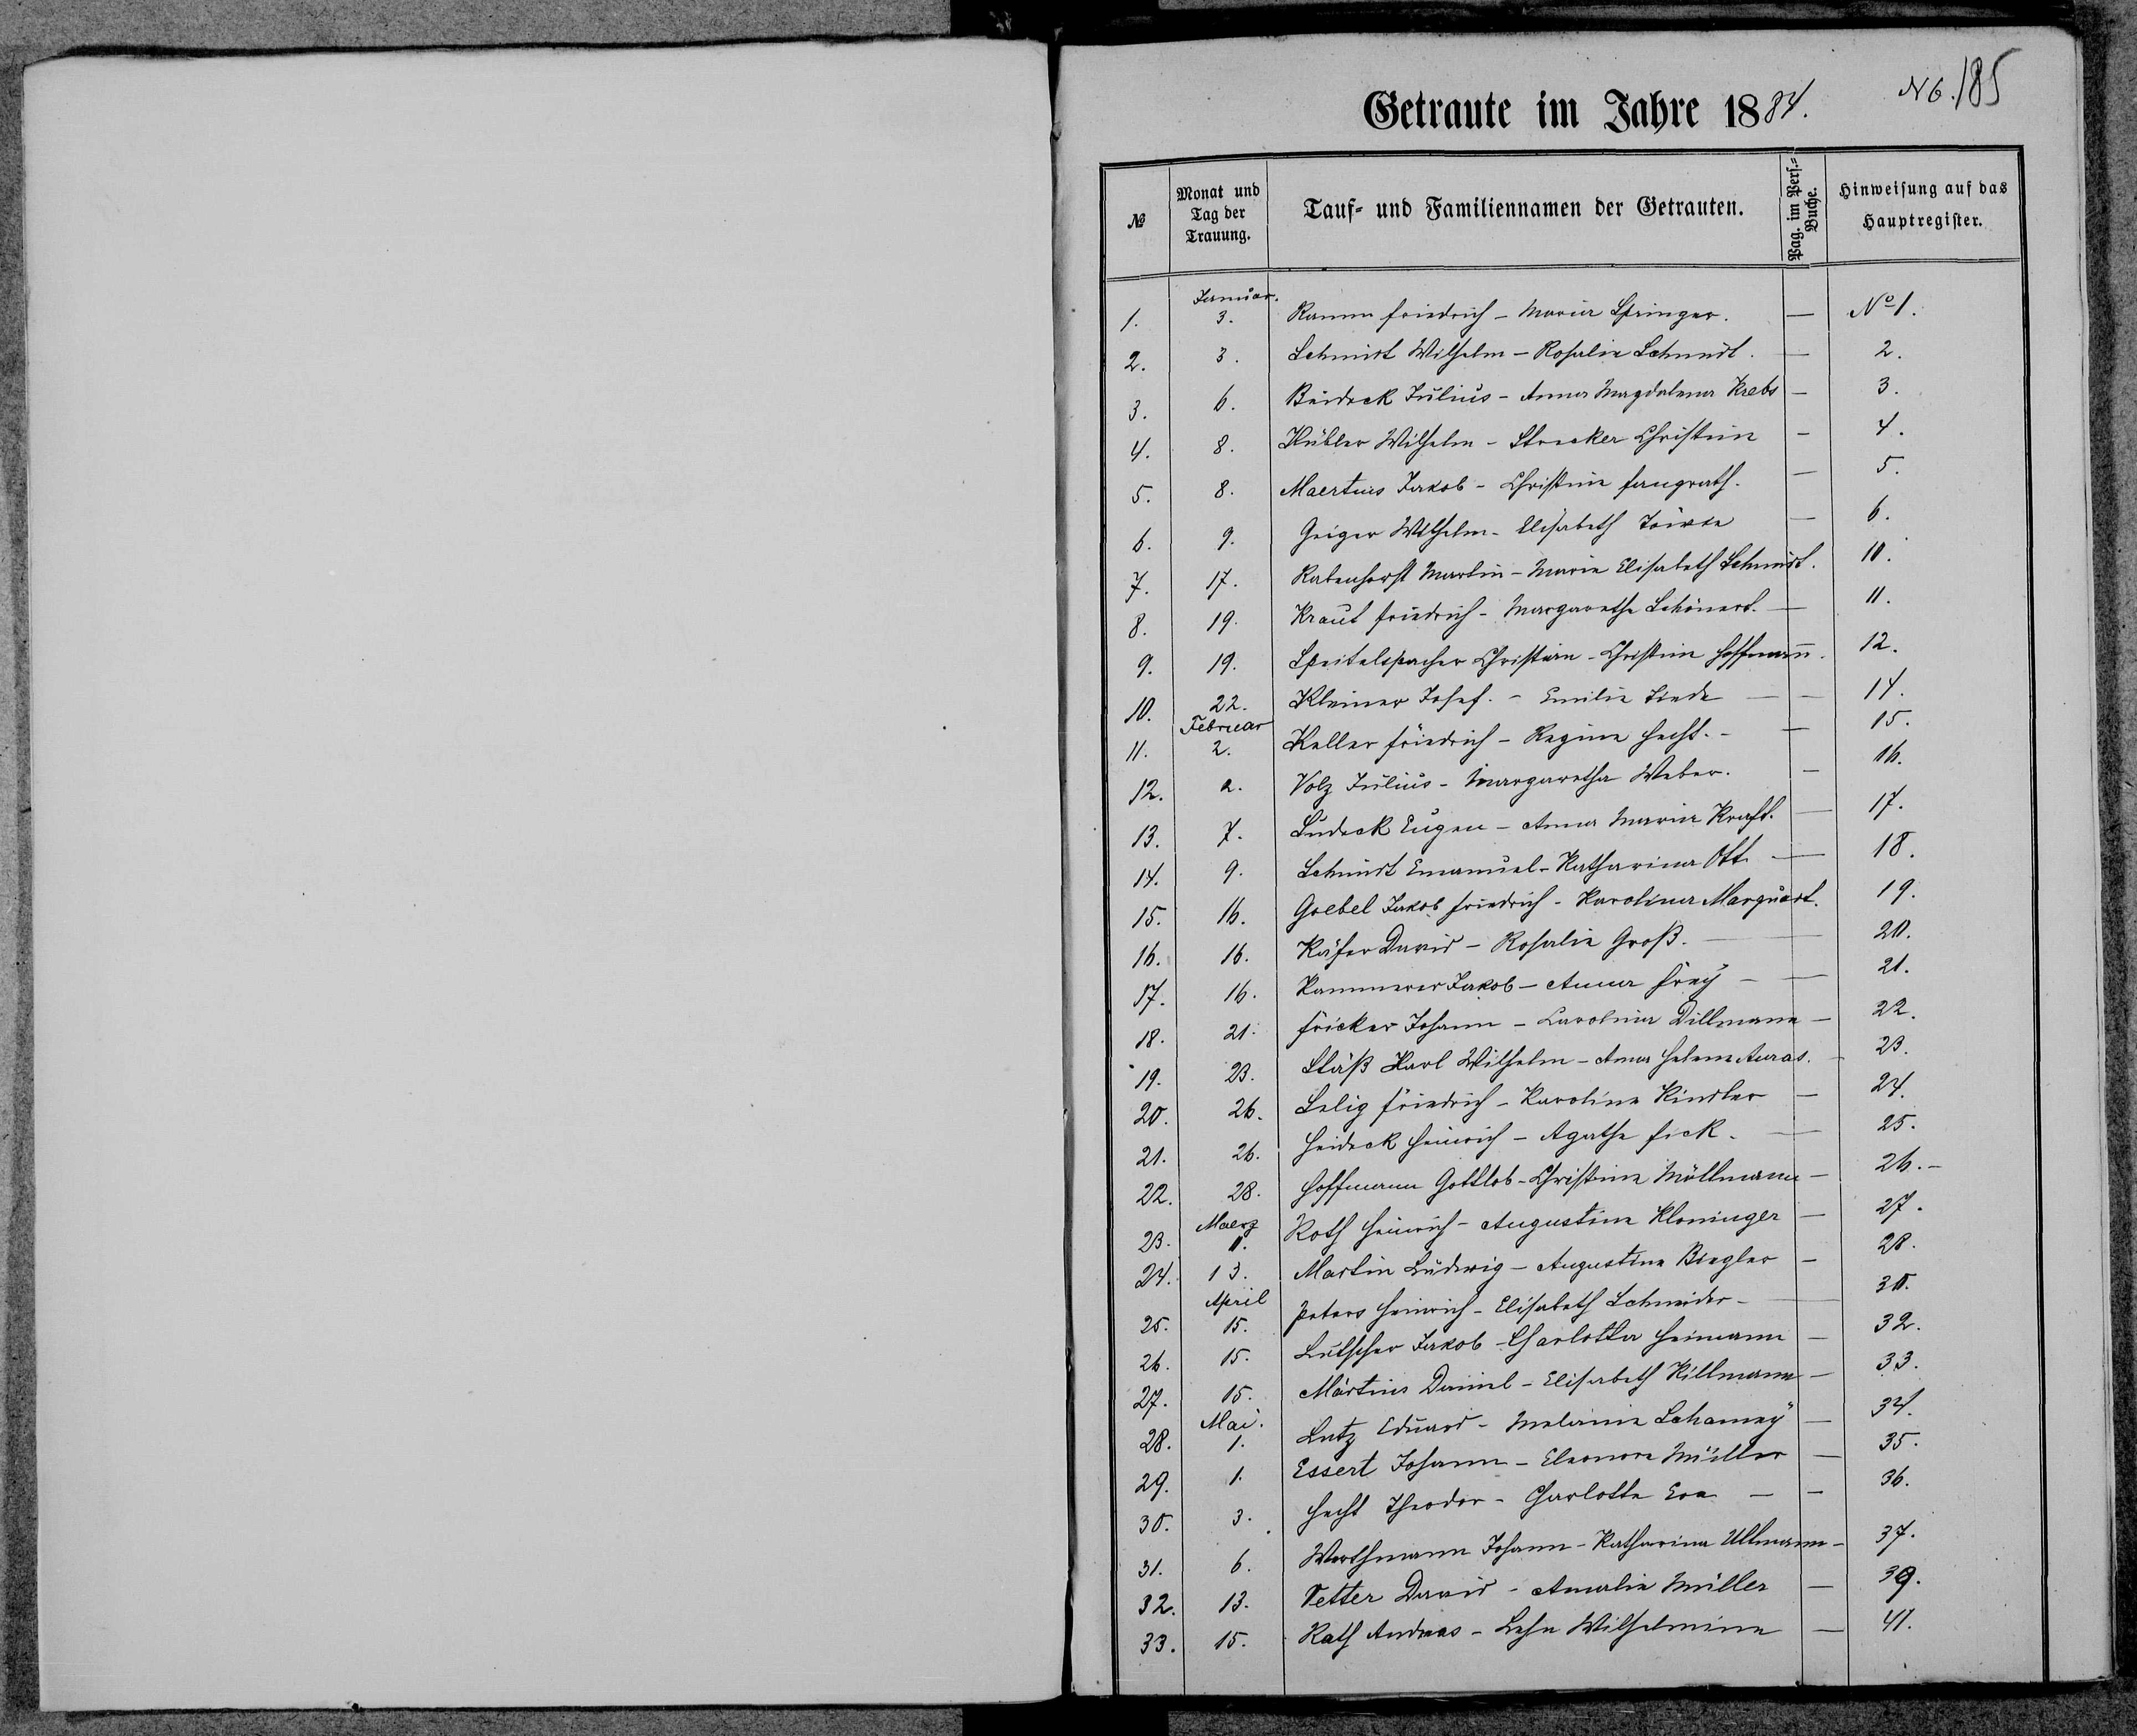 Getraute im Jahre 1884.
N6. 185
№ | Monat und Tag der Trauung. | Tauf- und Familiennamen der Getrauten. | Pag. im Pers.-Buche. | Hinweisung auf das Hauptregister.
Januar.
1. 3. Ramm Friedrich - Maria Springer. — № 1.
2. 3. Schmidt Wilhelm - Rosalie Schmidt. — 2.
3. 6. Beideck Julius - Anna Magdalena Krebs — 3.
4. 8. Kübler Wilhelm - Strecker Christine — 4.
5. 8. Maertins Jakob - Christine Hangrath. — 5.
6. 9. Geiger Wilhelm - Elisabeth — 6.
7. 17. Rabenhorst Martin - Marie Elisabeth Schmidt. 10.
8. 19. Kraut Friedrich - Margarethe Schönert. — 11.
9. 19. Speitelspacher Christian - Christine Hoffmann. 12.
10. 22. Kleiner Josef. - Emilie Linde — — 14.
Februar
11. 2. Keller Friedrich - Regina Hecht. - — 15.
12. 2. Volz Julius - Margaretha Weber. — 16.
13. 7. Budeck Eugen - Anna Maria Kraft. — 17.
14. 9. Schmidt Emanuel - Katharina Ott. — 18.
15. 16. Goebel Jakob Friedrich - Karolina Marquart. 19.
16. 16. Käfer David - Rosalie Groß. — 20.
17. 16. Kammerer Jakob - Anna Frey - — 21.
18. 21. Fricker Johann - Carolina Dillmann — 22.
19. 23. Stäß Karl Wilhelm - Anna Helena Auras. - 23.
20. 26. Selig Friedrich - Karoline Kindler — 24.
21. 26. Heideck Heinrich - Agathe Fick. — 25.
22. 28. Hoffmann Gottlob - Christine Möllmann — 26. -
Maerz
23. 1. Roth Heinrich - Augustine Kloninger — 27.
24. 13. Martin Ludwig - Augustine Biegler — 28.
April
25. 15. Peters Heinrich - Elisabeth Schneider - — 30.
26. 15. Lutscher Jakob - Charlotta Heimann — 32.
27. 15. Märtins Daniel - Elisabeth Killmann — 33.
Mai.
28. 1. Lutz Eduard - Melanie Schamey — 34.
29. 1. Essert Johann - Eleonore Müller — 35.
30. 3. Hecht Theodor - Charlotte Eva — - 36.
31. 6. Werthmann Johann - Katharina Ullmann - 37.
32. 13. Vetter David - Amalie Müller — 39.
33. 15. Rath Andreas - Lehn Wilhelmine — 41.